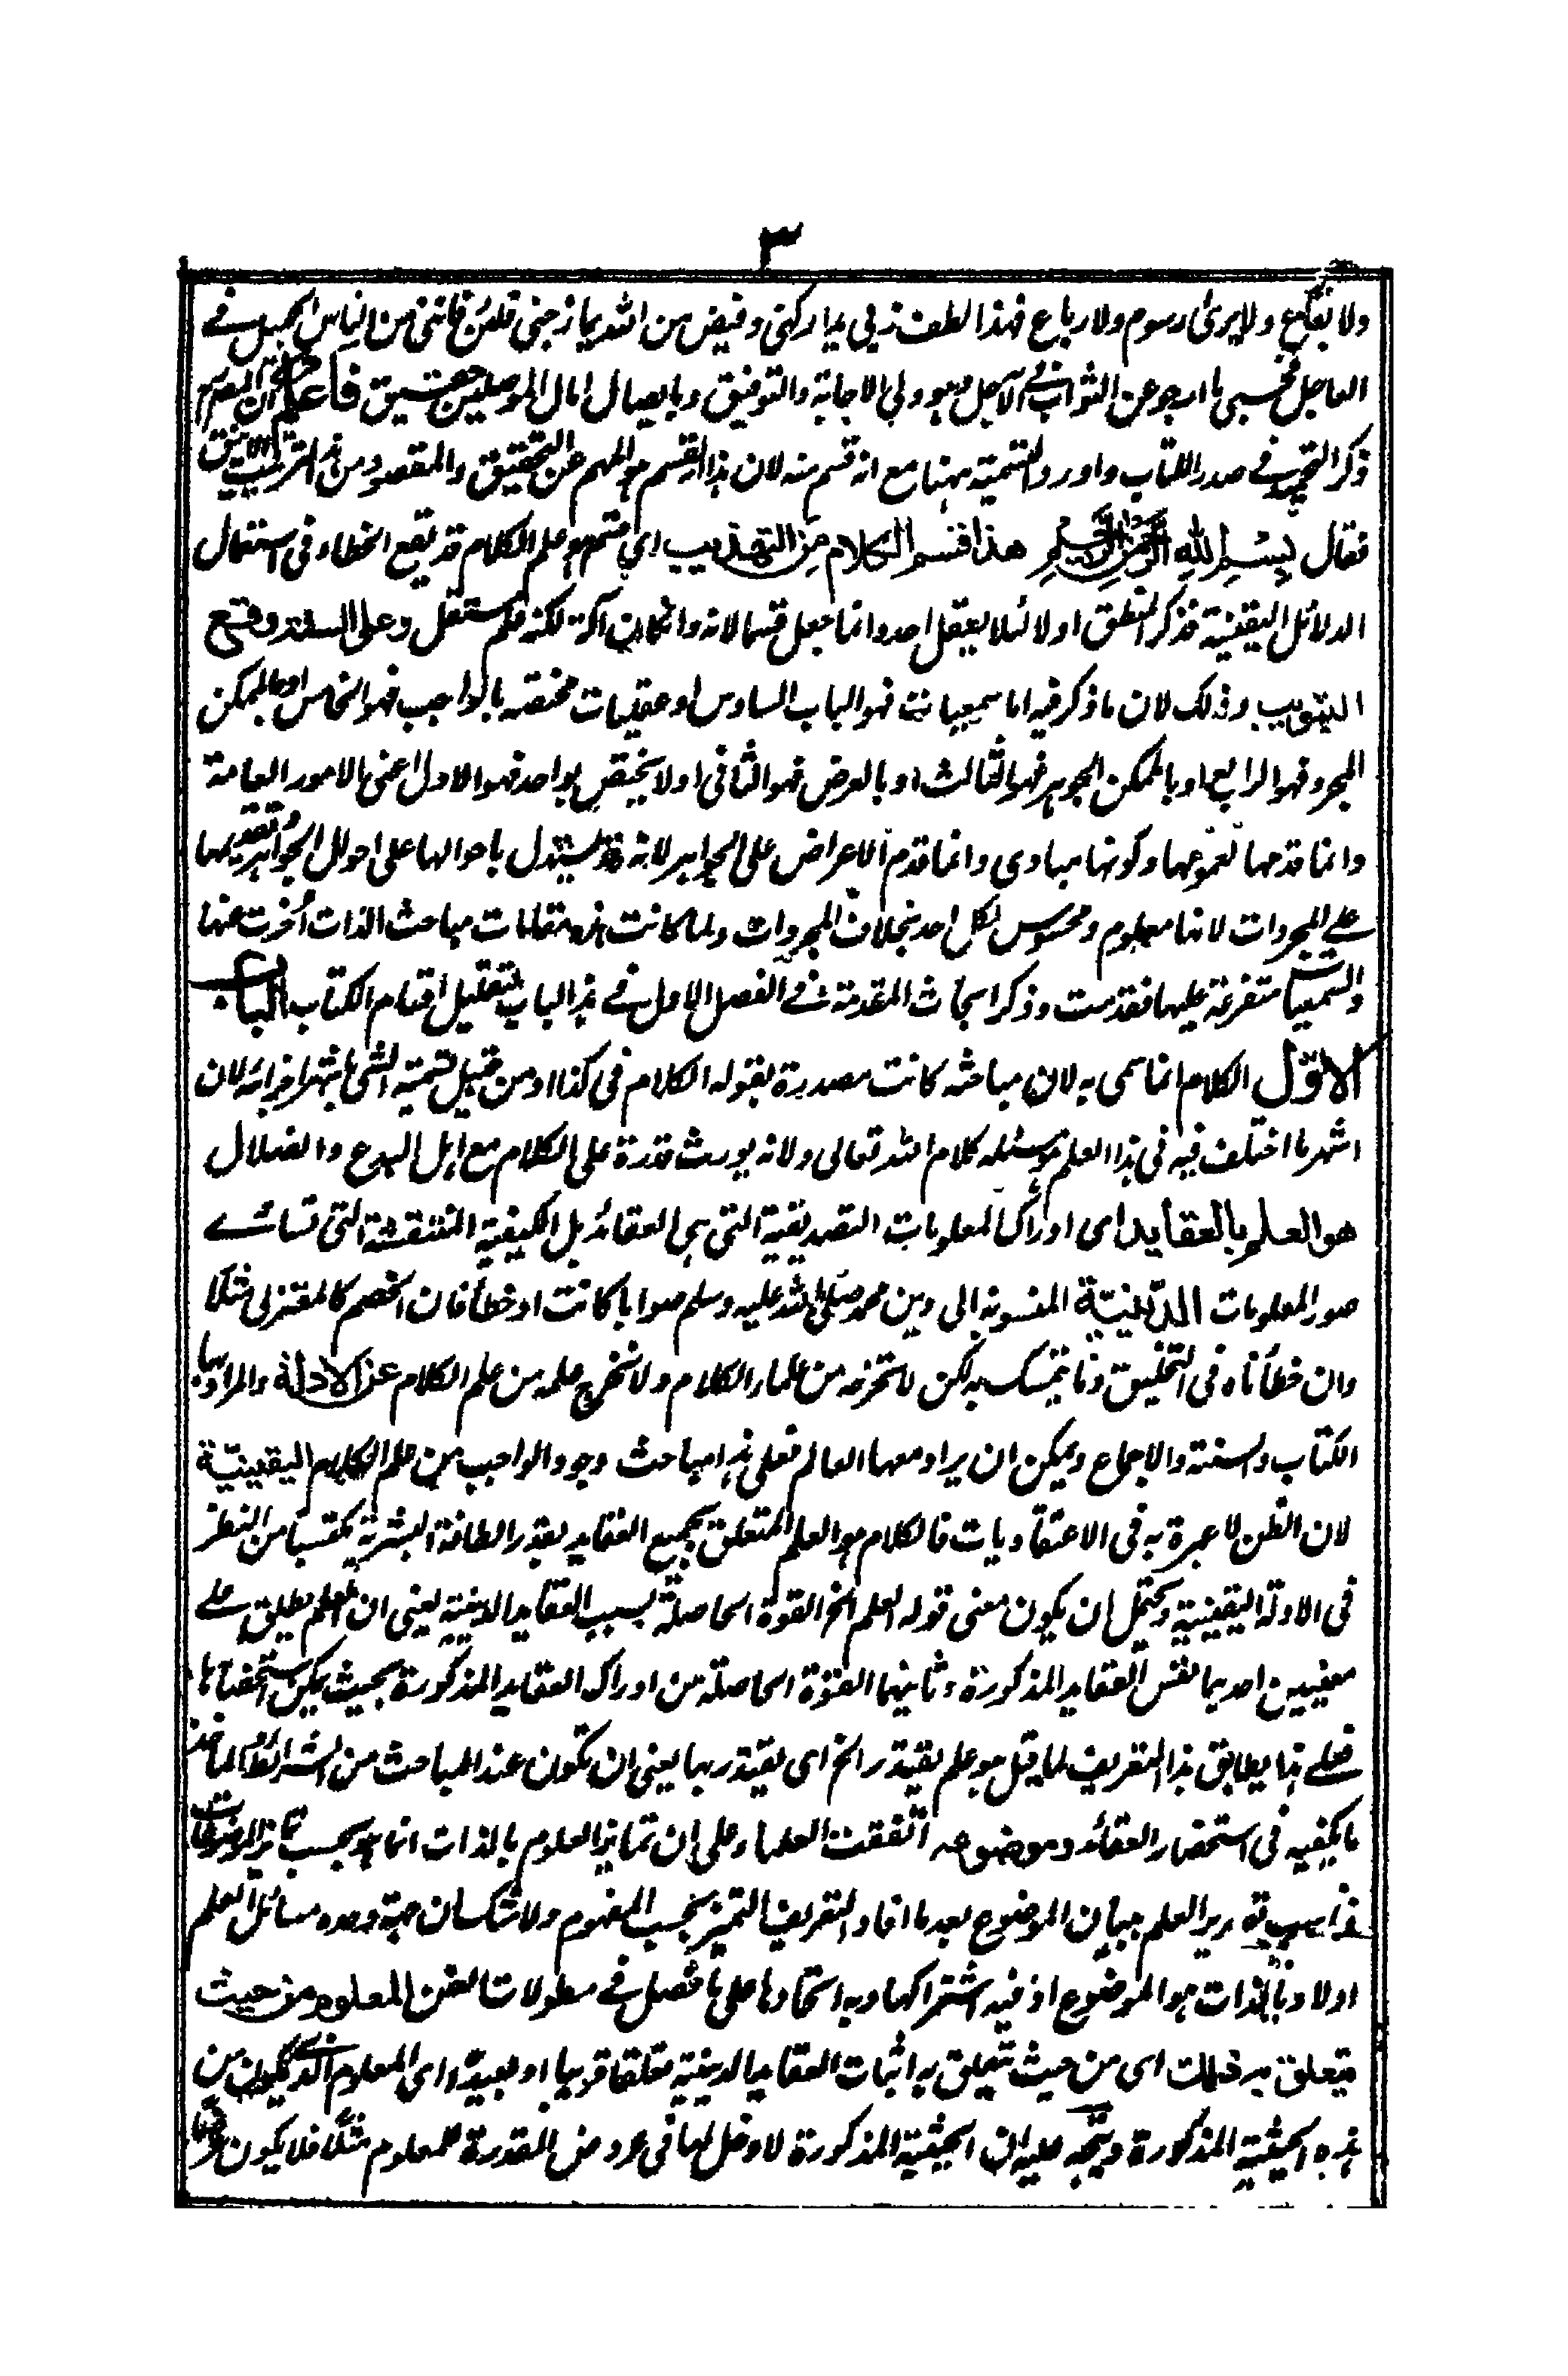 ٣
ولا يفكع ولا يرى رسوم ولا رباع فهذا لطف ربي بما ركني وفيض من الله بما زجني فلئن فاتني من الناس الجميل في
العاجل فحسبي ما ارجو عن الثواب في الآجل فهو ولي الاجابة والتوفيق وبايصال امال الموصلين حقيق فاعلم ان المص
ذكر التحميد في صدر الكتاب واورد التسمية ههنا مع انه قسم منه لان هذا القسم هو المهم عن التحقيق والمقصود من هذا الترتيب الانيق
فقال بسم الله الرحمن الرحيم هذا قسم الكلام من التهذيب اي قسم هو علم الكلام قد يقع الخطاء في استعمال
الدلائل اليقينية فذكر المنطق اولا لئلا يعقل احد وانما جعل قسما لانه وان كان آلة لكنه علم مستقل وعلى الستة وقع
التبويب وذلك لان ما ذكر فيه اما سمعيات فهو الباب السادس او عقليات مختصة بالواجب فهو الخامس او بالممكن
المجرد فهو الرابع او بالممكن الجوهر فهو الثالث او بالعرض فهو الثاني او لا يختص بواحد فهو الاول اعني الامور العامة
وانما قدمها لعمومها وكونها مبادي وانما قدم الاعراض على الجواهر لانه قد يستدل باحوالها على احوال الجواهر وتقديمها
على المجردات لانها معلوم ومحسوس لكل احد بخلاف المجردات ولما كانت هذه مقامات مباحث الذات أخرت عنها
والسمعيات متفرعة عليها فقدمت وذكر ابحاث المقدمة في الفصل الاول في هذا الباب لتقليل اقسام الكتاب الباب
الاول الكلام انما سمي به لان مباحثه كانت مصدرة بقوله الكلام في كذا او من قبيل تسمية الشئ باشهر اجزائه لان
اشهر ما اختلف فيه في هذا العلم مسئله كلام الله تعالى ولانه يورث قدرة على الكلام مع اهل البدع والضلال
هو العلم بالعقايد اى ادراك المعلومات التصديقية التي هي العقائد بل الكيفية المنتقشة التي تسائے
صور المعلومات الدينية المنسوبة الى دين محمد صلى الله عليه وسلم صوابا كانت او خطأ فان الخصم كالمعتزلى مثلا
وان خطأناه في التخليق وما يتمسك به لكن لا نخرجه من علماء الكلام ولا نخرج علمه من علم الكلام عن الادلة والمراد بها
الكتاب والسنة والاجماع ويمكن ان يراد معها العالم فعلى هذا مباحث وجود الواجب من علم الكلام اليقينية
لان الظن لا عبرة به في الاعتقاديات فالكلام هو العلم المتعلق بجميع العقايد بقدر الطاقة البشرية مكتسبا من النظر
في الادلة اليقينية ويحتمل ان يكون معنى قوله العلم الخ القوة الحاصلة بسبب العقايد الدينية يعني ان العلم يطلق على
معنيين احدهما نفس العقايد المذكورة وثانيهما القوة الحاصلة من ادراك العقايد المذكورة بحيث يمكن استحضارها
فعلى هذا يطابق هذا التعريف لما قيل هو علم يقتدر الخ اى يقتدر بها يعني ان تكون عند المباحث من الشرائط والماخذ
ما يكفيه في استحضار العقائد وموضوعه اتفقت العلماء على ان تمايز العلوم بالذات انما هو بحسب تمايز الموضوعات
تصدير العلم ببيان الموضوع بعد ما افاد التعريف التميز بحسب المفهوم ولا شك ان جهة وحدة مسائل العلم
اولا وبالذات هو الموضوع اذ فيه اشتراكها وبه اتحادها على ما فصل في مطولات الفن المعلوم من حيث
يتعلق به ذلك اى من حيث يتعلق به اثبات العقايد الدينية تعلقا قريبا او بعيدا اى المعلوم الذي يكون من
هذه الحيثية المذكورة ويتجه عليه ان الحيثية المذكورة لا دخل لها في عروض المقدرة للمعلوم مثلا فلا يكون عرضا